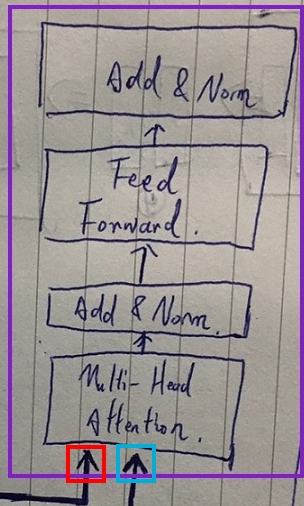 Add & Norm
Feed
Forward.
Add & Norm.
Multi-Head
Attention.